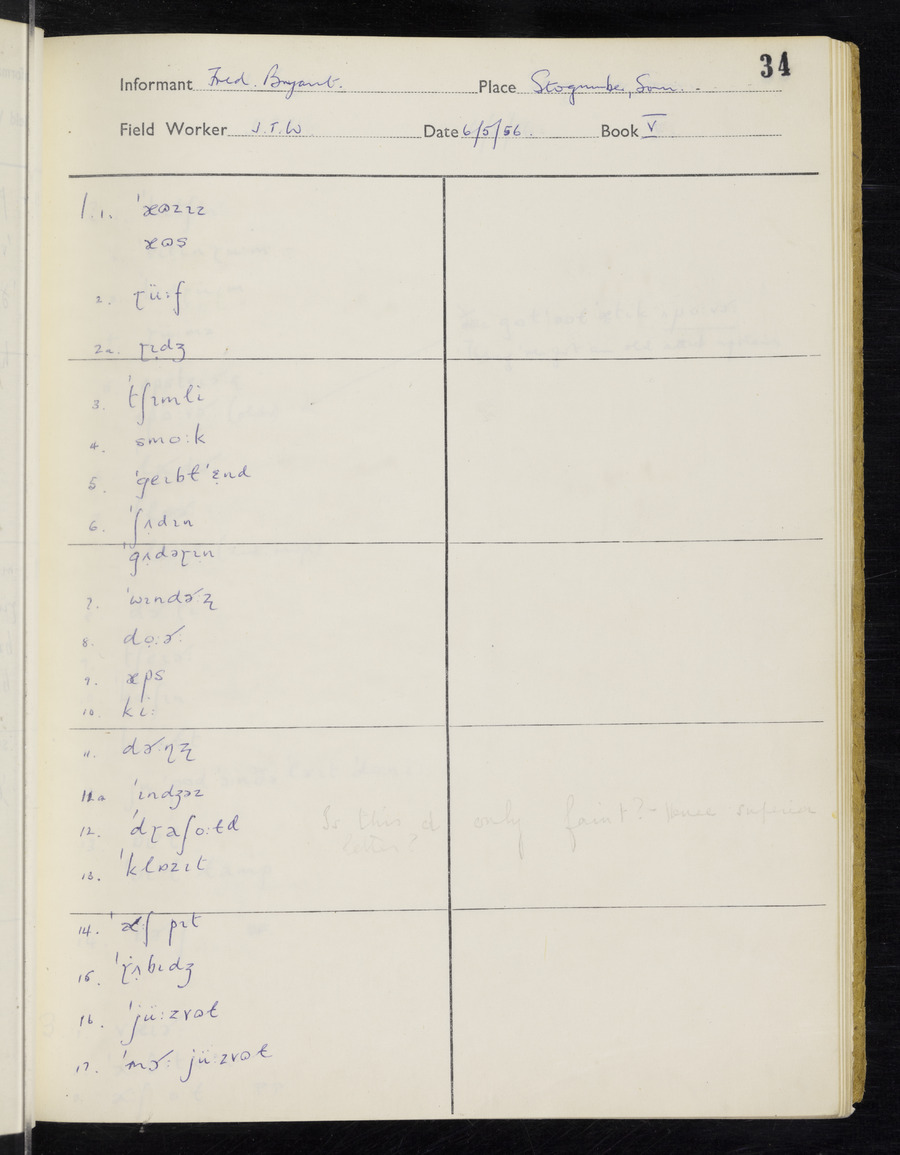 34
Informant Fred. Bryant. Place Stogumber, Som.
Field Worker J.T.W Date 6/5/56. Book V
1.1. ˈæɷzɪz
æɷs
2. ɽü:f
2a. ɽɪdʒ
3. ˈtʃɪmli
4. smo:k
5. ˈgeɪbtˈɛ̣nd
6. ˈʃʌdɪn
ˈgʌdəɽɪn
7. ˈwɪndɚ:ʐ
8. dọ:ɚ:
9. æps
10. ki:
11. dɚ:ɳʐ
11a ˈɪndʒəz
12. ˈdɽaʃo:td
Is this d only faint? - hence superior
letter?
13. ˈklɒzɪt
14. ˈæʃ pɪt
15. ˈɽʌbɪdʒ
16. ˈjü:zvɷt
17. ˈmɔ˞: jü:zvɷt